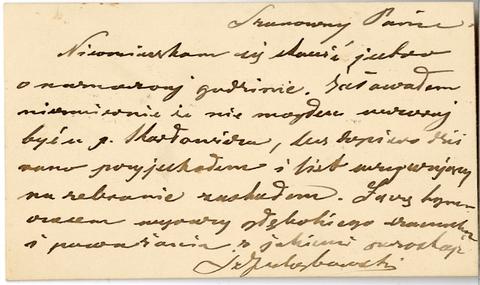 Szanowny Panie
Nieomieszkam się stawić jutro
o naznaczonej godzinie. Żałowałem
niezmiernie że nie mogłem wczoraj
być u p. lecz dopiero dziś
rano przyjechałem i list wzywający
na zebranie zastałem. Łączę tym-
czasem wyrazy głębokiego szacunku
i poważania z jakimi pozostaję